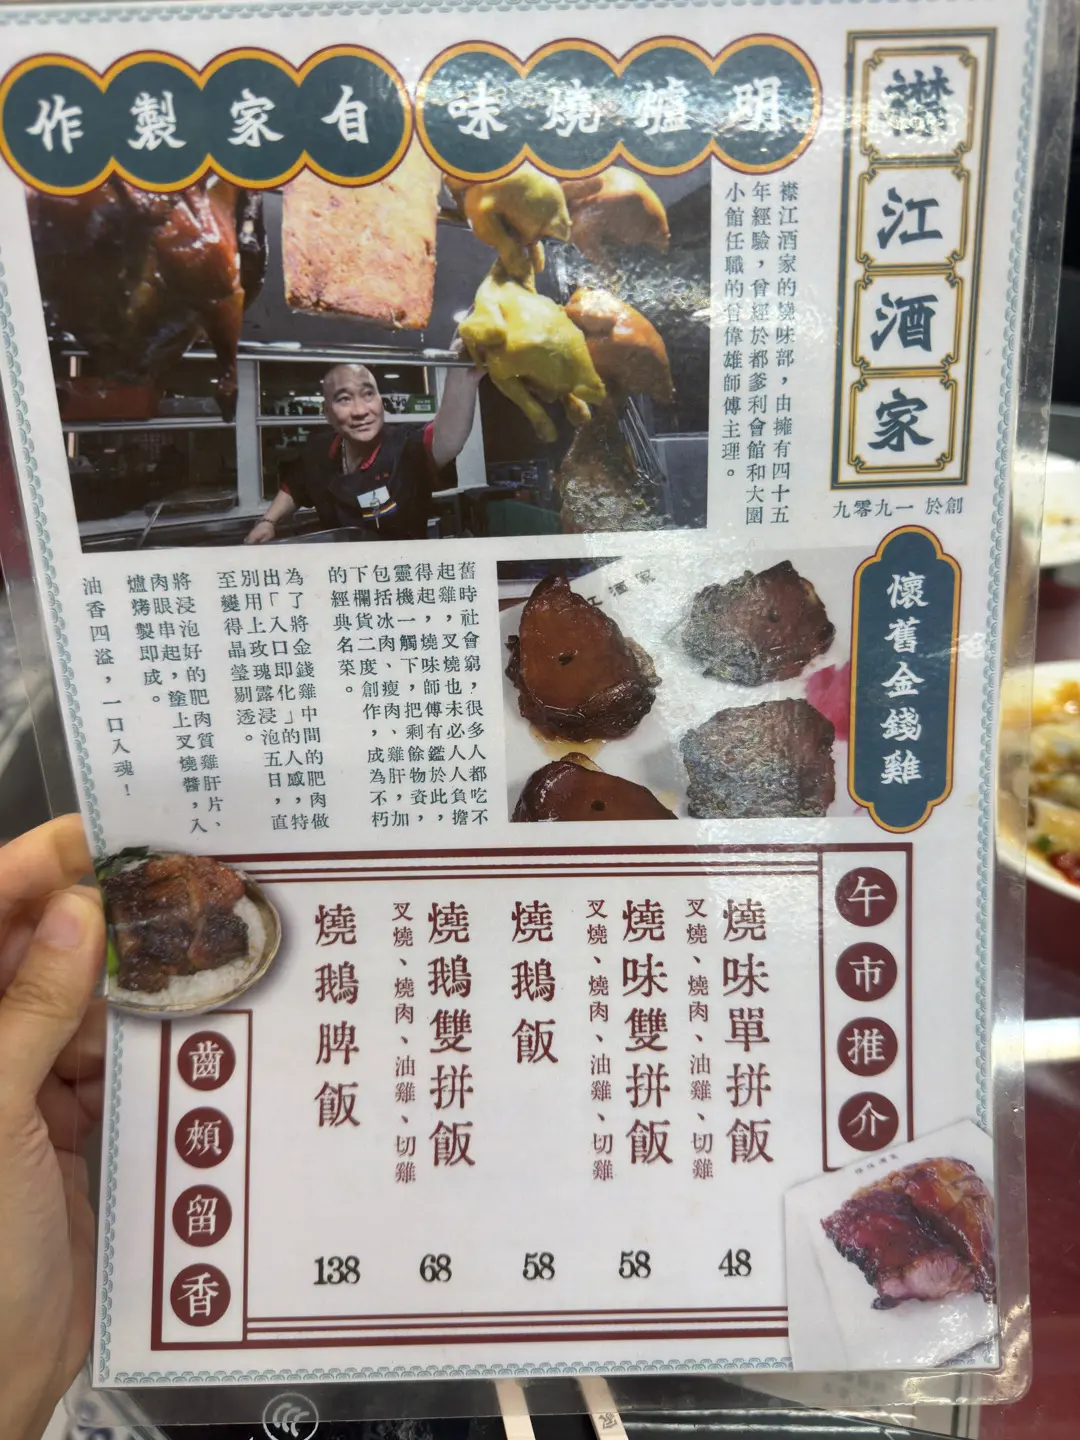 明爐燒味
自家製作
襟江酒家
創於一九九零九
襟江酒家的燒味部，由擁有四十五
年經驗，曾經於都爹利會館和大圍
小館任職的
偉雄師傅主理。
懷舊金錢雞
舊時社會窮，很多人都吃不
起雞，叉燒也未必人人負擔
得起，燒味師傅有鑑於此，
靈機一觸下，把剩餘物資，
包括冰肉、瘦肉、雞肝，加
下欄貨二度創作，成為不朽
的經典名菜。
為了將金錢雞中間的肥肉做
出「入口即化」的人感，特
別用上玫瑰露浸泡五日，直
至變得晶瑩剔透。
將浸泡好的肥肉質雞肝片、
肉眼串起，塗上叉燒醬，入
爐烤製即成。
油香四溢，一口入魂！
午市推介
燒味單拼飯
叉燒、燒肉、油雞、切雞
48
燒味雙拼飯
叉燒、燒肉、油雞、切雞
58
燒鵝飯
58
燒鵝雙拼飯
叉燒、燒肉、油雞、切雞
68
燒鵝脾飯
138
齒頰留香